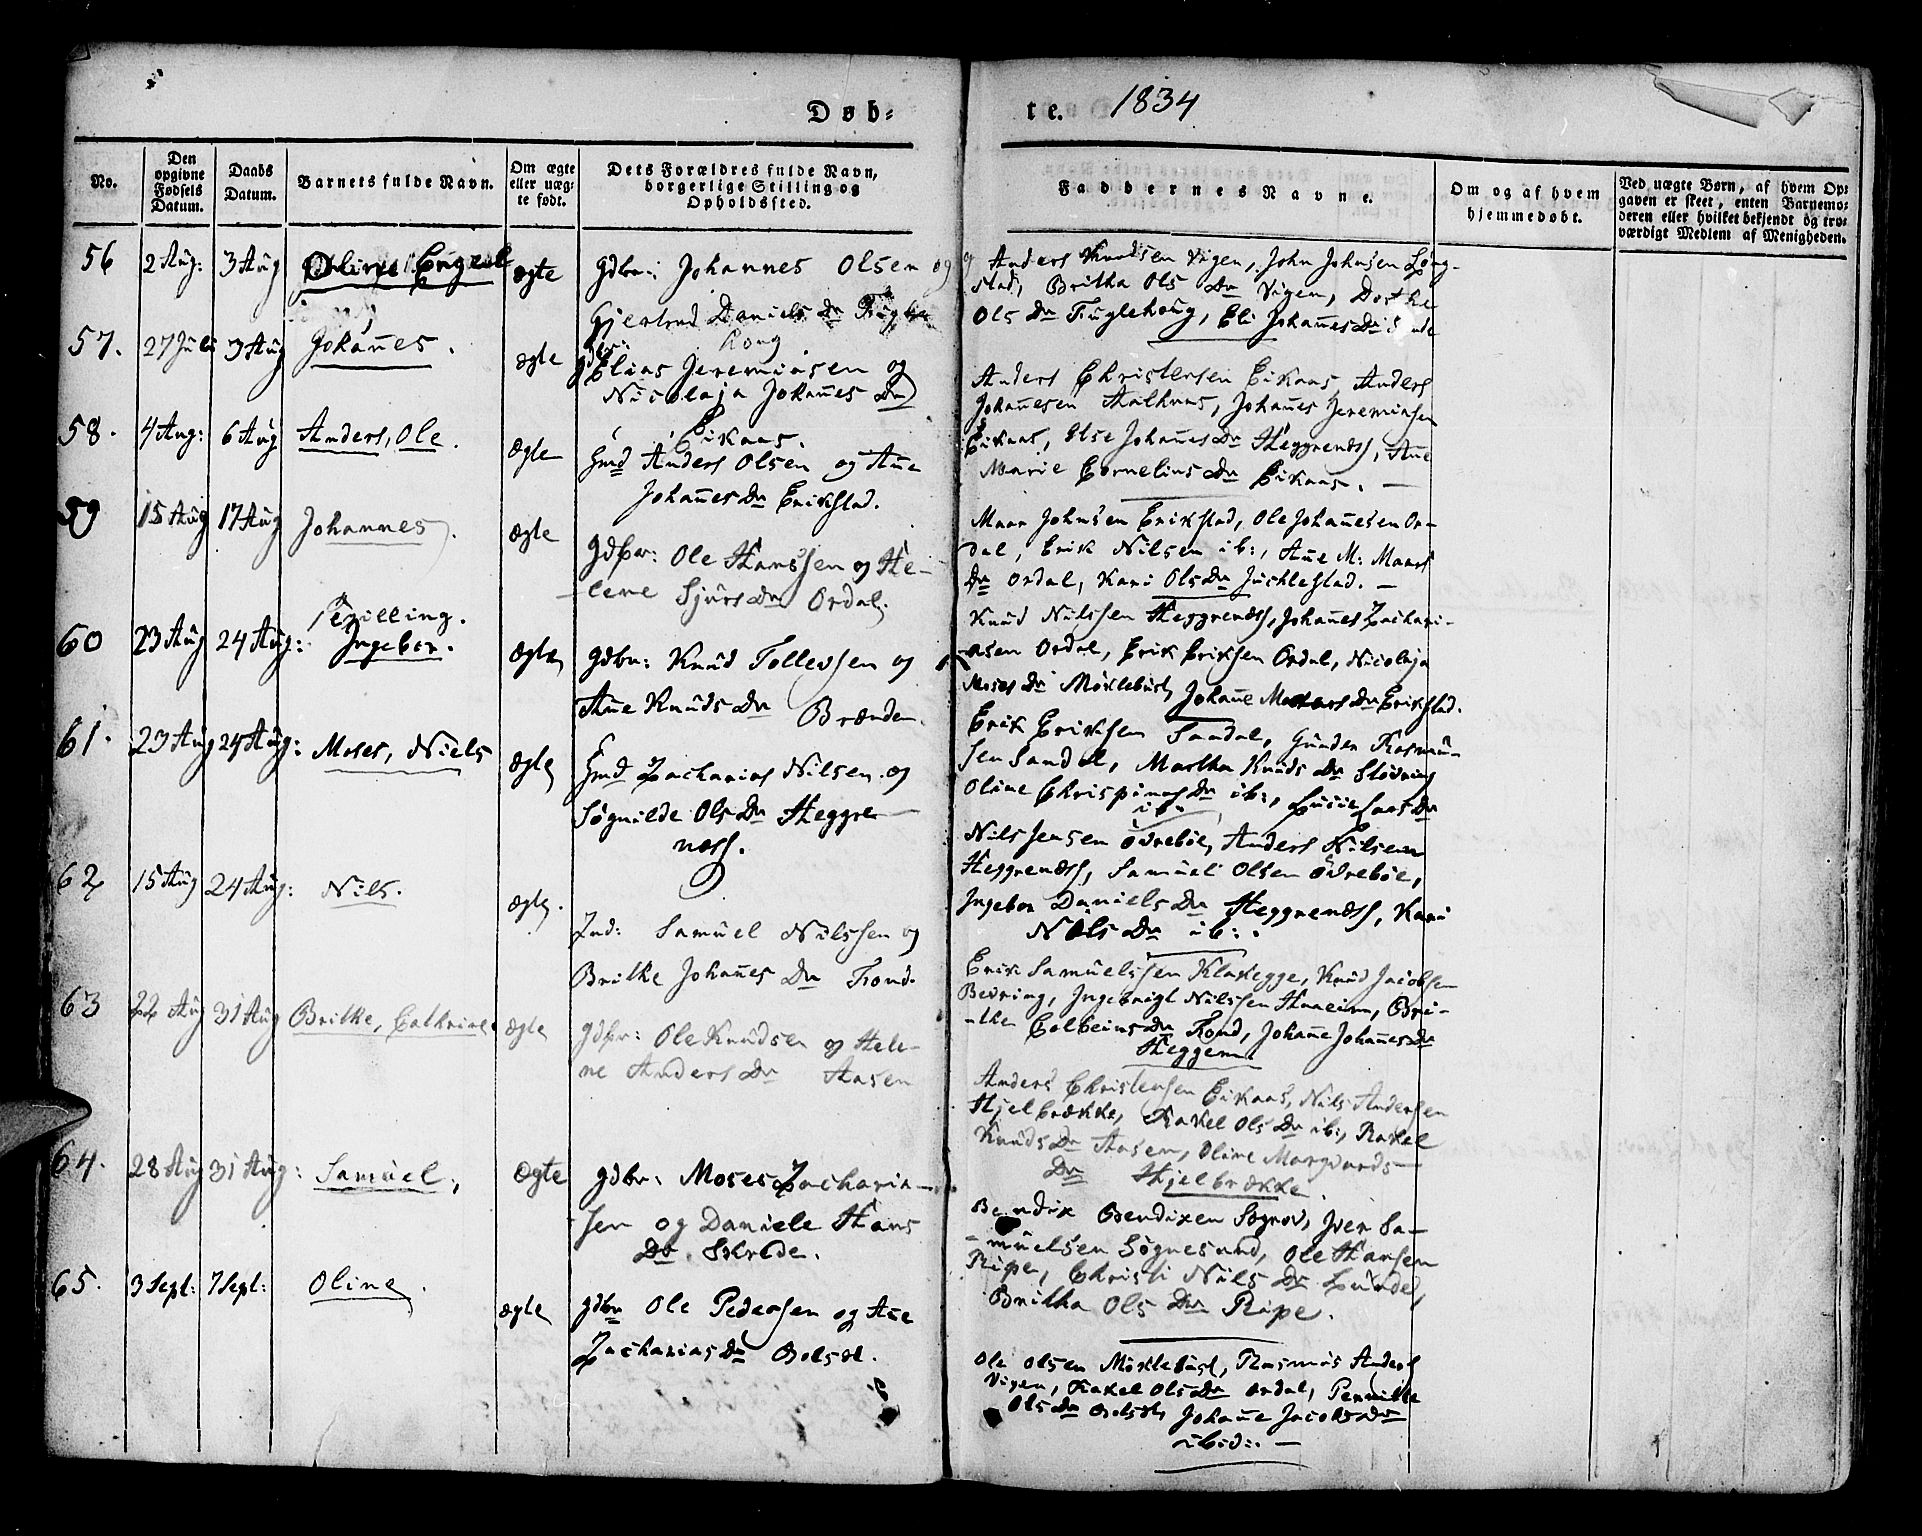 Døb-
te. 1834
No.
Den opgivne Fødsels Datum.
Daabs Datum.
Barnets fulde Navn.
Om ægte eller uæg-te født.
Dets Forældres fulde Navn, borgerlige Stilling og Opholdssted.
Faddernes Navne.
Om og af hvem hjemmedøbt.
Ved uægte Børn, af hvem Op-gaven er skeet, enten Barnemo-deren eller hvilket bekjendt og tro-værdigt Medlem af Menigheden.
56 2 Aug: 3 Aug Oline Engel ægte
Gdbr: Johannes Olsen og
Gjertrud Daniels Dr Fugle
houg
Anders Knudsen Vigen, John Johnsen Løng-
stad, Britha Ols Dr Vigen, Dorthe
Ols Dr Fuglehoug, Eli Johañes Dr
57. 27 Juli 3 Aug Johañes. ægte
Gdbr: Elias Jeremiasen og
Nicolaja Johañes Dr
Eikaas.
Anders Christensen Eikaas, Anders
Johañesen Aalhuus, Johañes Jeremiasen
Eikaas, Else Johañes Dr Heggrenæss, Añe
Marie Cornelius Dr Eikaas. —
58. 4 Aug: 6 Aug Anders, Ole. Ægte
Hmd Anders Olsen og Añe
Johañes Dr Erikstad.
Maar Johnsen Erikstad, Ole Johañesen Or-
dal, Erik Nilsen ib:, Añe M: Maars
Dr Ordal, Kari Ols Dr Juchlestad. —
59 15 Aug 17 Aug Johannes. Ægte
Gdbr: Ole Hanssen og He-
lene Sjurs Dr Ordal.
Knud Nilssen Heggrenæss, Johañes Zachari-
asen Ordal, Erik Eriksen Ordal, Nicolaja
Moses Dr Møklebust, Johañe Maars Dr Erikstad.
60 23 Aug 24 Aug: Tvilling. Ingebor. Ægte
Gdbr: Knud Tollevsen og
Añe Knuds Dr Brænden.
Erik Eriksen Sandal, Gunder Rasmu-
sen Sandal, Martha Knuds Dr Støvring
Oline Chrispinus Dr ib:, Lucie Lars Dr
ib:
61. 23 Aug 24 Aug: Moses, Niels Ægte
Hmd Zacharias Nilsen og
Søgnilde Ols Dr Heggre-
næss.
Nils Jensen Ødrebøe, Anders Nilsen
Heggrenæss, Samuel Olsen Ødrebøe,
Ingebor Daniels Dr Heggrenæss, Kari
Nils Dr ib:
62 15 Aug 24 Aug: Nils. Ægte.
Ind: Samuel Nilssen og
Brithe Johañes Dr Fond.
Erik Samuelssen Klakegge, Knud Jacobsen
Bevring, Ingebrigt Nilssen Haaeim, Bri-
the Colbeins Dr Fond, Johañe Johañes Dr
Heggem
63 22 Aug 31 Aug Brithe, Cathrine Ægte
Gdbr: Ole Knudsen og Hele-
ne Anders Dr Aasen
Anders Christensen Eikaas, Nils Andersen
Hjelbrække, Rakel Ols Dr ib:, Rakel
Knuds Dr Aasen, Oline Margvards
Dr Hjelbrække.
64. 28 Aug 31 Aug: Samuel. Ægte
Gdbr: Moses Zacharia-
sen og Daniele Hans
Dr. Skrede.
Bendix Bendixen Sognov, Iver Sa-
muelsen Sögnesund, Ole Hansen
Ripe, Christi Nils Dr Lunde,
Britha Ols Dr Ripe.
65. 3 Sept: 7 Sept: Oline. Ægte
Gdbr Ole Pedersen og Añe
Zacharias Dr Bolset.
Ole Olsen Møklebust, Rasmus Anders
Vigen, Rakel Ols Dr Ordal, Pernille
Ols Dr Bolset, Johañe Jacobs Dr
ibid:. —